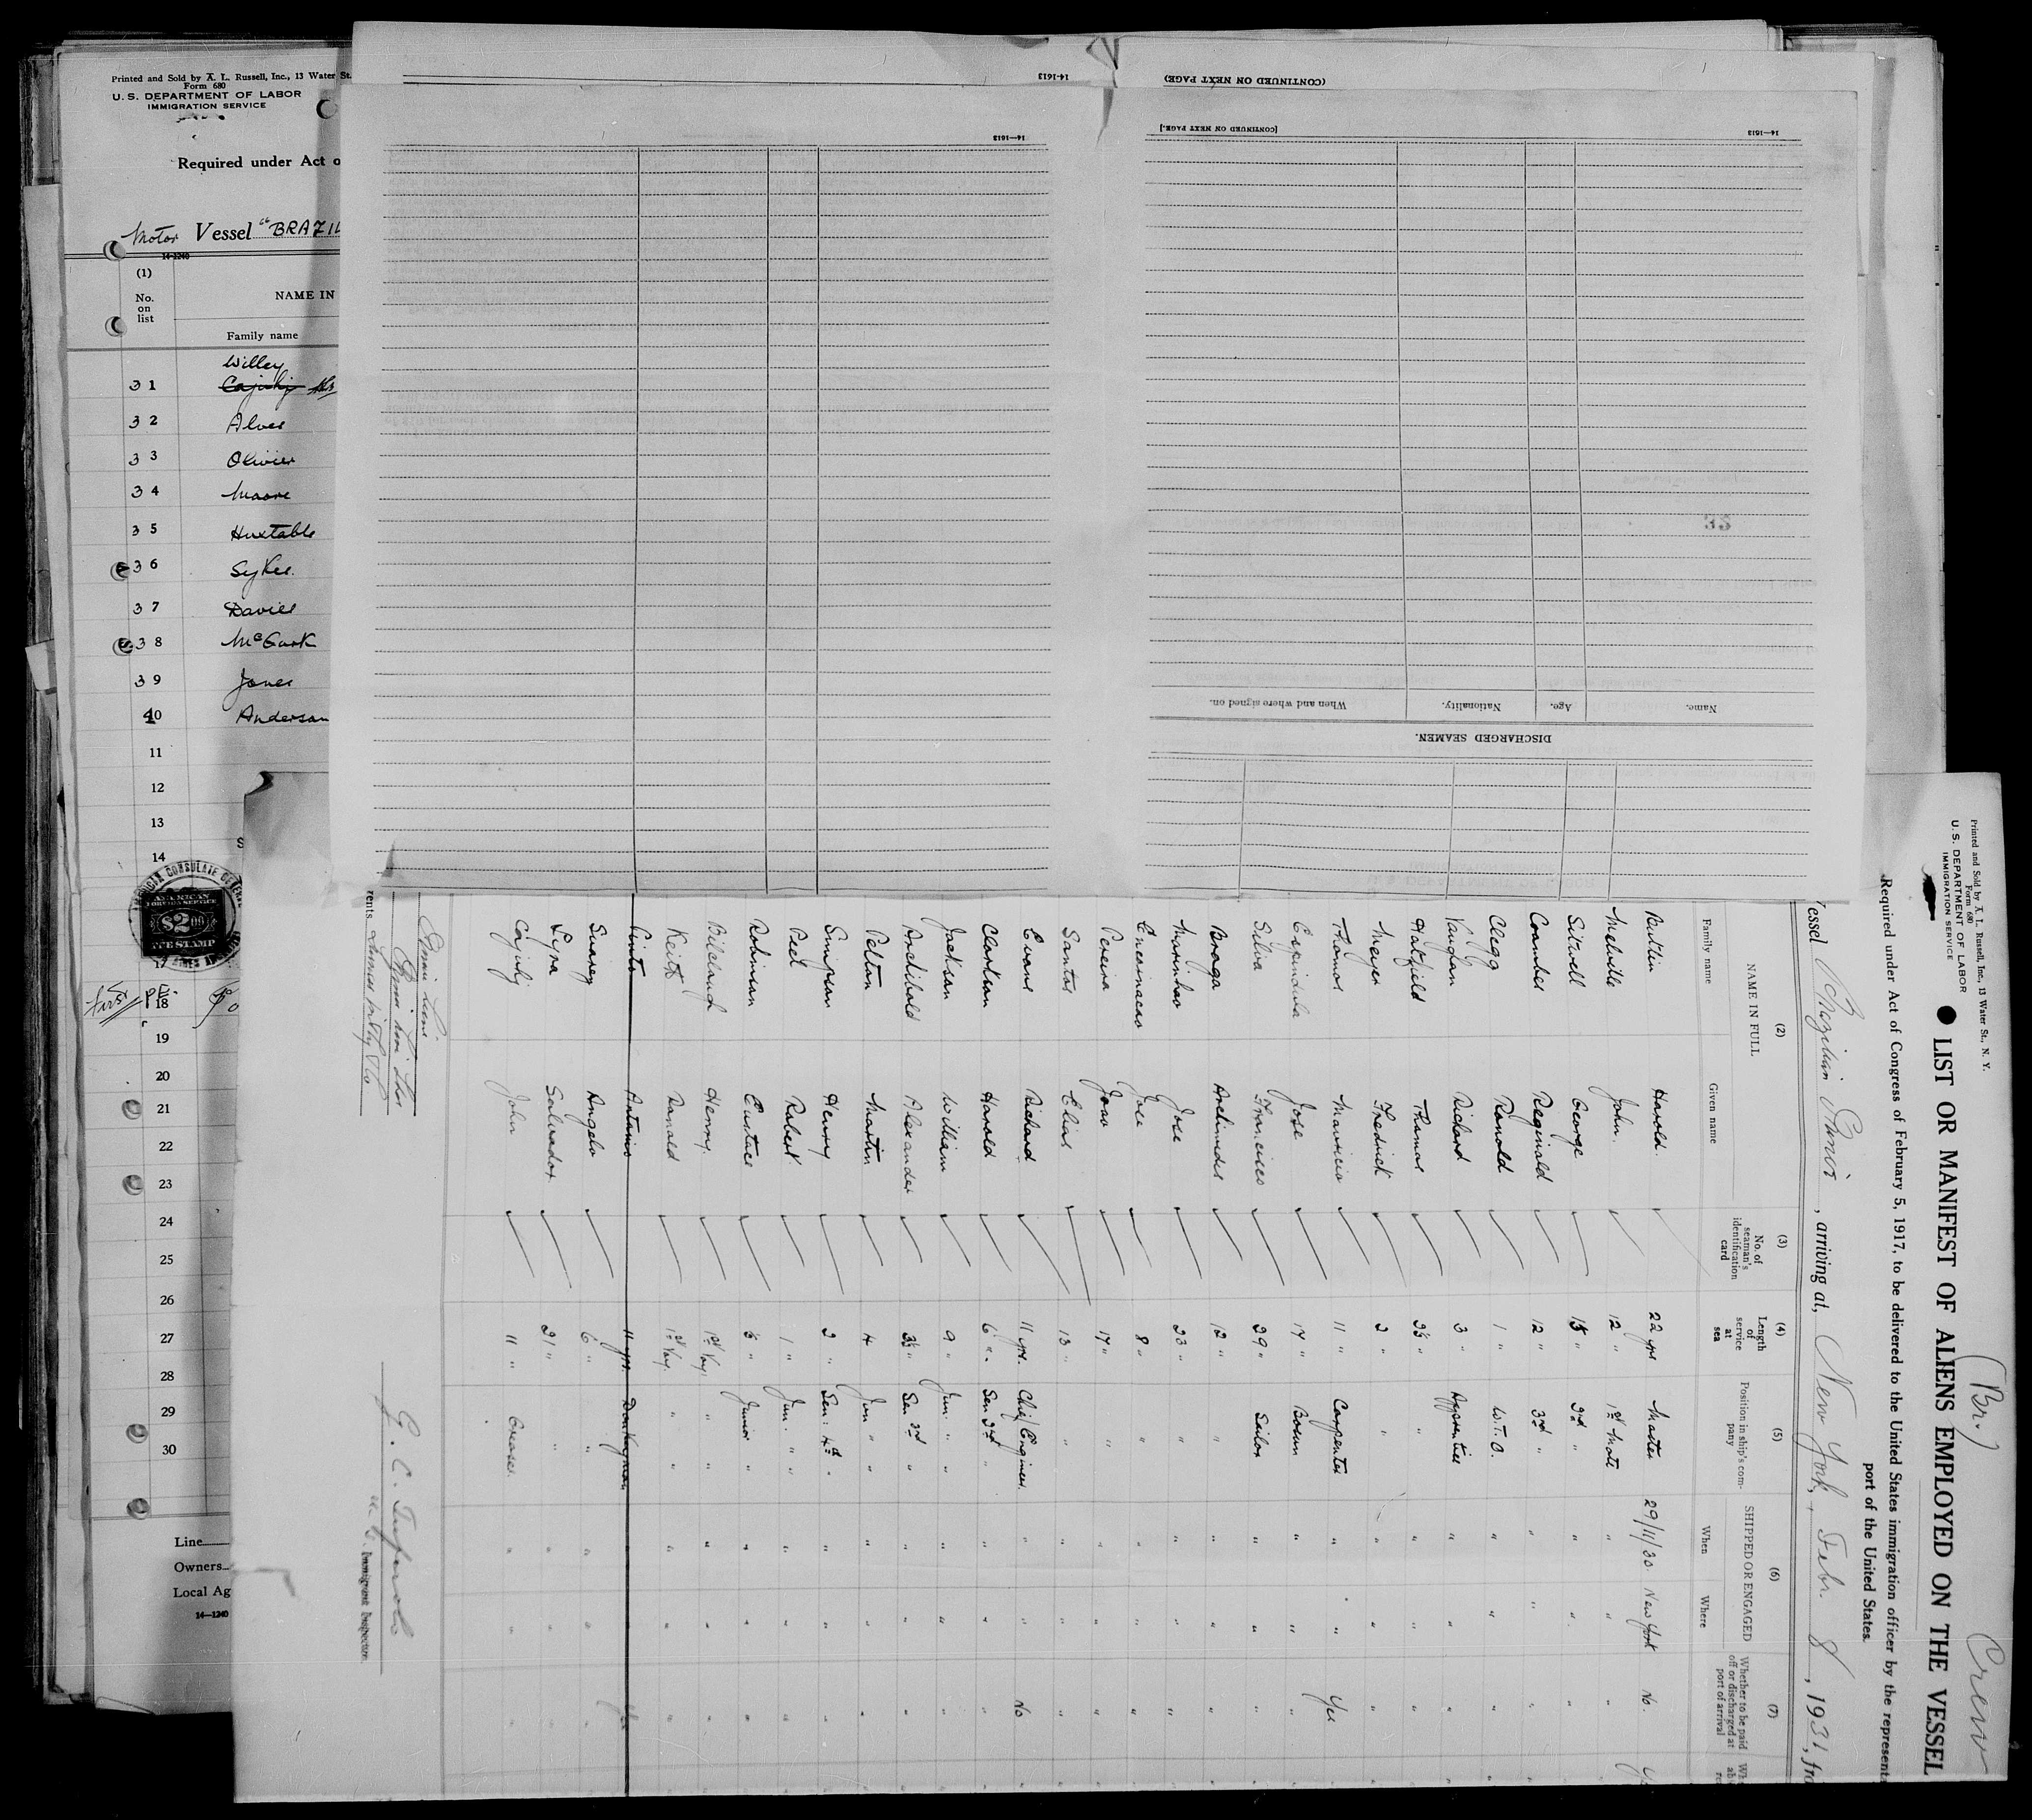 Printed and Sold by A. L. Russell, Inc., 13 Water St.
Form 680
U. S. DEPARTMENT OF LABOR
IMMIGRATION SERVICE
Required under Act o
Motor Vessel "BRAZIL
14-1240
(1)
No. on list
NAME IN
Family name
Willey
31
32 Alves
33 Olivier
34 Moore
35 Huxtable
36 Sykes.
37 Davies
38 McGurk
39 Jones
40 Anderson
11
12
13
14
AMERICAN CONSULATE GENERAL
AMERICAN
FOREIGN SERVICE
$2.00
FEE STAMP
17
18
19
20
21
22
23
24
25
26
27
28
29
30
Line
Owners
Local Ag
14-1240
14-1613
(CONTINUED ON NEXT PAGE)
14-1613
[CONTINUED ON NEXT PAGE.]
14-1613
33
When and where signed on.
Nationality.
Age.
Name.
DISCHARGED SEAMEN.
Printed and Sold by A. L. Russell, Inc., 13 Water St., N. Y.
Form 680
U. S. DEPARTMENT OF LABOR
IMMIGRATION SERVICE
(Br.)
Crew
LIST OR MANIFEST OF ALIENS EMPLOYED ON THE VESSEL
Required under Act of Congress of February 5, 1917, to be delivered to the United States immigration officer by the represents
port of the United States.
Vessel Brazilian Prince, arriving at New York, Febr. 8, 1931, fro
(2)
NAME IN FULL
Family name
Given name
(3)
No. of seaman's identification card
(4)
Length of service at sea
(5)
Position in ship's company
(6)
SHIPPED OR ENGAGED
When
Where
(7)
Whether to be paid off or discharged at port of arrival
Harold. 22 yrs Master 29/11/30. New York No.
Melville John. 12 " 1st Mate " "
Sitwell George 15 " 2nd " " "
Coombes Reginald 12 " 3rd " " "
Clegg Ronald 1 " W.T.O. " "
Vaughan Richard 3 " Apprentice " "
Hatfield Thomas 3½ " " " "
Meyer Fredrick 2 " " " "
Thomas Mauricio 11 " Carpenter " " Yes
Espindula Jose 17 " Bosun " " "
Silva Francisco 29 " Sailor " " "
Braga Archimedes 12 " " " " "
Marinhao Jose 23 " " " " "
Encarnacao Jose 8 " " " " "
Pereira Joao 17 " " " " "
Santos Elias 13 " " " " "
Evans Richard 11 yrs. Chief Engineer. " " No
Clarkson Harold 6 " Sen 2nd " " " "
Jackson William 9 " Jun. " " " " "
Archibald Alexander 3½ " Sen 3rd " " " "
Pelton Martin 4 " Jun " " " " "
Simpson Henry 2 " Sen. 4th " " " "
Peel Robert 1 " Jun. " " " " "
Robinson Eustace ½ " Junior " " " "
Henry. 1st Voy. " " " " "
Keith Ronald 1st Voy. " " " " "
Pinto Antonio 11 yrs. Donkeyman " " Yes
Suarey Angelo 6 " " " "
Lyra Salvador 21 " " " " "
John 11 " Greaser. " " "
Immigrant Inspector.